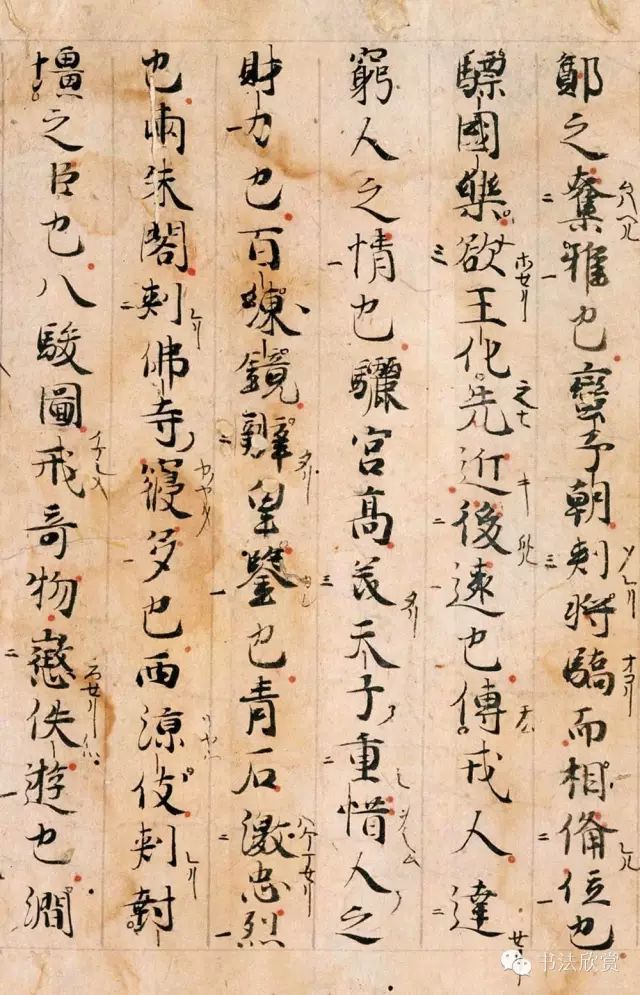 鄭之奪雅也蠻子朝刺將驕而相備位也
驃國樂欲王化先近後遠也傳戎人達
窮人之情也驪宮高美天子重惜人之
財力也百練鏡辭皇鑒也青石激忠烈
也兩朱閣刺佛寺寖多也西涼伎刺封
疆之臣也八駿圖戒奇物懲佚遊也澗
书法欣赏